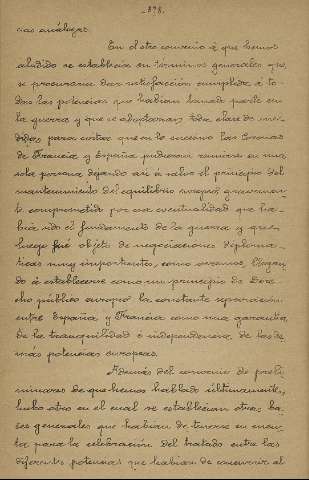 -878.
cias análogas.
En el otro convenio á que hemos
aludido se establecía en términos generales que
se procuraria dar satisfacción cumplida á to-
das las potencias que habían tomado parte en
la guerra y que se adoptarían toda clase de me-
didas para evitar que en lo sucesivo las Coronas
de Francia y España pudieran reunirse en una
sola persona dejando así á salvo el principio del
mantenimiento del equilibrio europeo, gravemen-
te comprometido por esa eventualidad que ha-
bía sido el fundamento de la guerra y que
luego fué objeto de negociaciones diplomá-
ticas muy importantes, como veremos, llegan-
do á establecerse como un principio de Dere-
cho público europeo la constante separación
entre España y Francia como una garantía
de la tranquilidad é independencia de las de-
más potencias europeas.
Además del convenio de preli-
minares de que hemos hablado últimamente,
hubo otro en el cual se establecían otras ba-
ses generales que habían de tenerse en cuen-
ta para la celebración del tratado entre las
diferentes potencias que habían de concurrir al